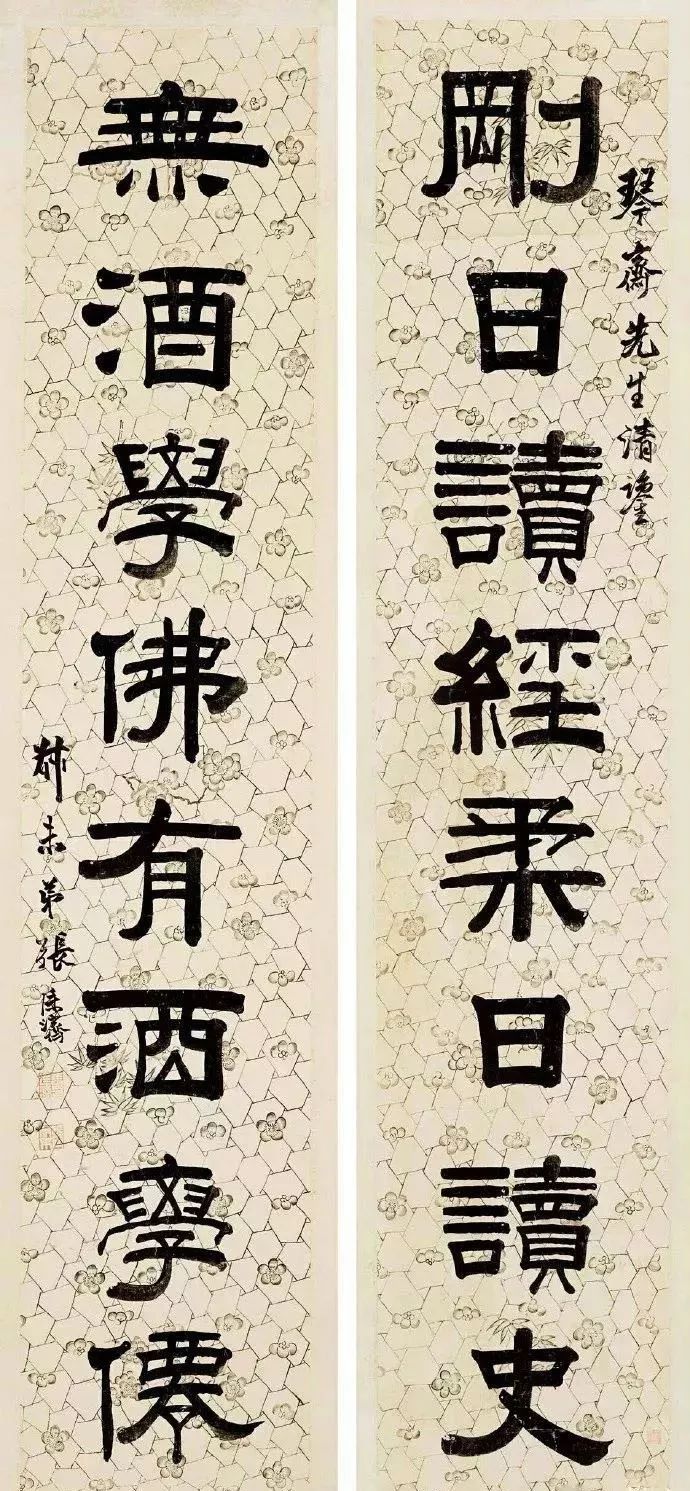 琴齋先生清鑒
剛日讀經柔日讀史
無酒學佛有酒學僊
叔未弟張廷濟